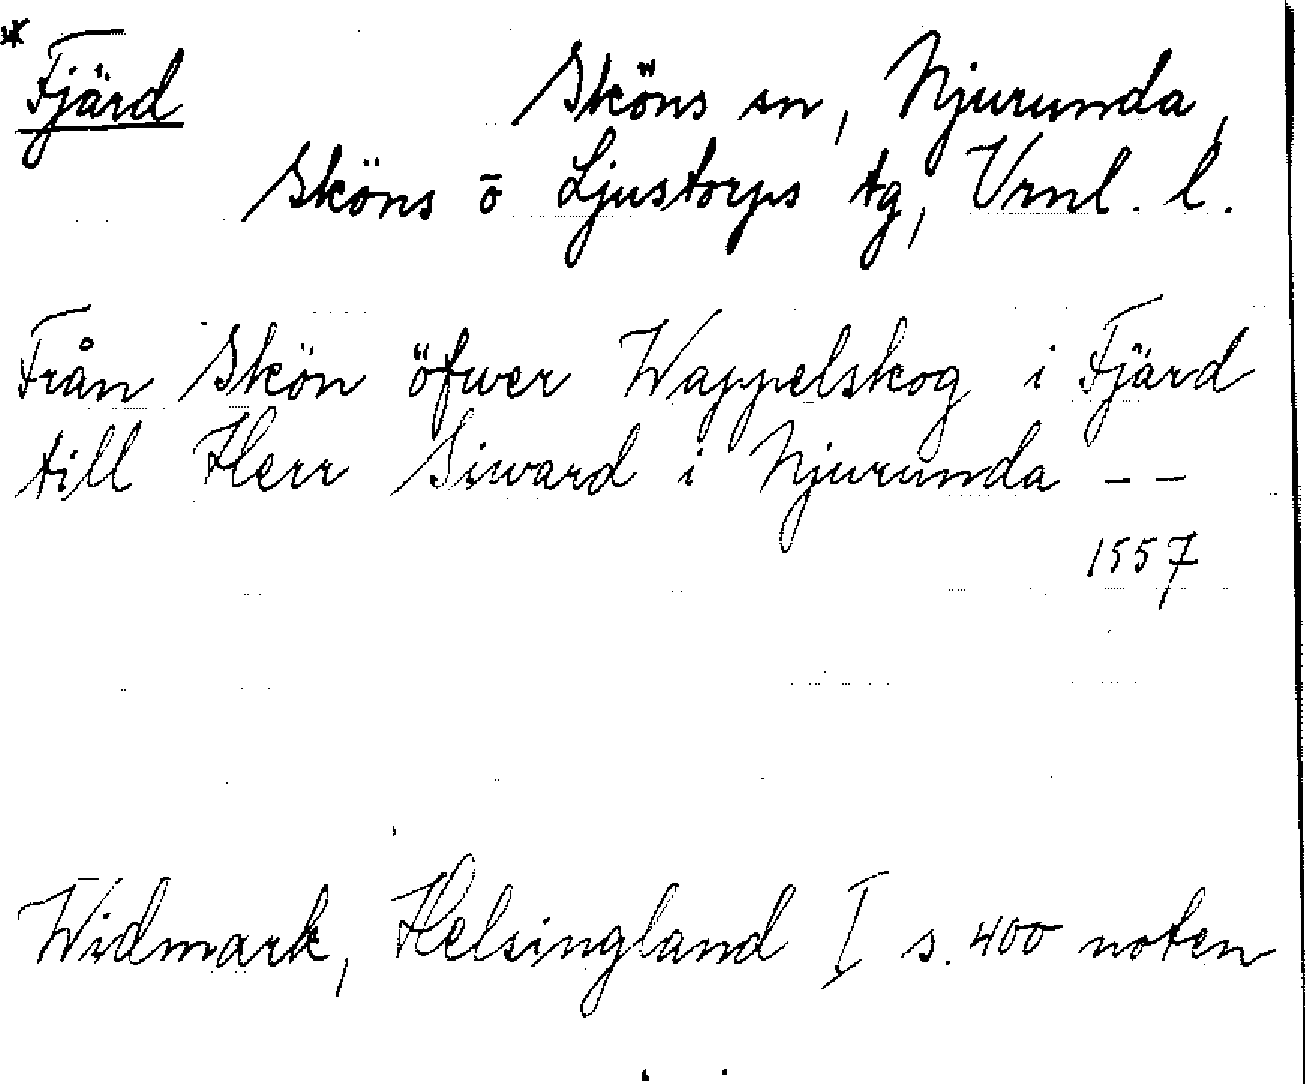 * Fjärd Sköns sn, Njurunda,
Sköns o Ljustorps tg, Vrnl. l.
Från Skön öfwer Wappelskog i Fjärd
till Herr Siward i Njurunda - -
1557
Widmark, Helsingland I s. 400 noten